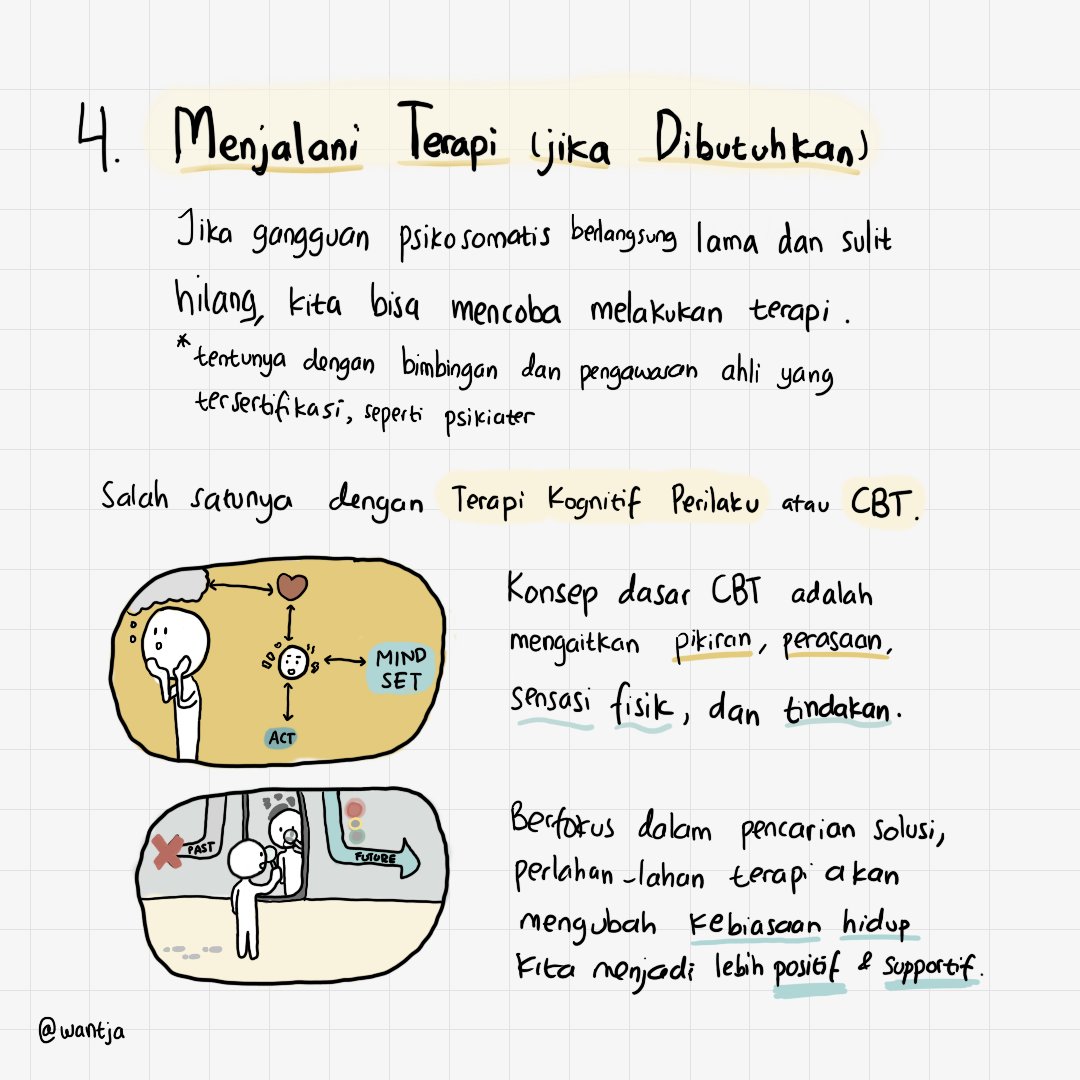 4. Menjalani Terapi (jika Dibutuhkan)
Jika gangguan psikosomatis berlangsung lama dan sulit
hilang, kita bisa mencoba melakukan terapi.
*tentunya dengan bimbingan dan pengawasan ahli yang
tersertifikasi, seperti psikiater
Salah satunya dengan Terapi Kognitif Perilaku atau CBT.
MIND
SET
ACT
Konsep dasar CBT adalah
mengaitkan pikiran, perasaan,
sensasi fisik, dan tindakan.
PAST
FUTURE
Berfokus dalam pencarian solusi,
perlahan-lahan terapi akan
mengubah kebiasaan hidup
kita menjadi lebih positif & supportif.
@wantja